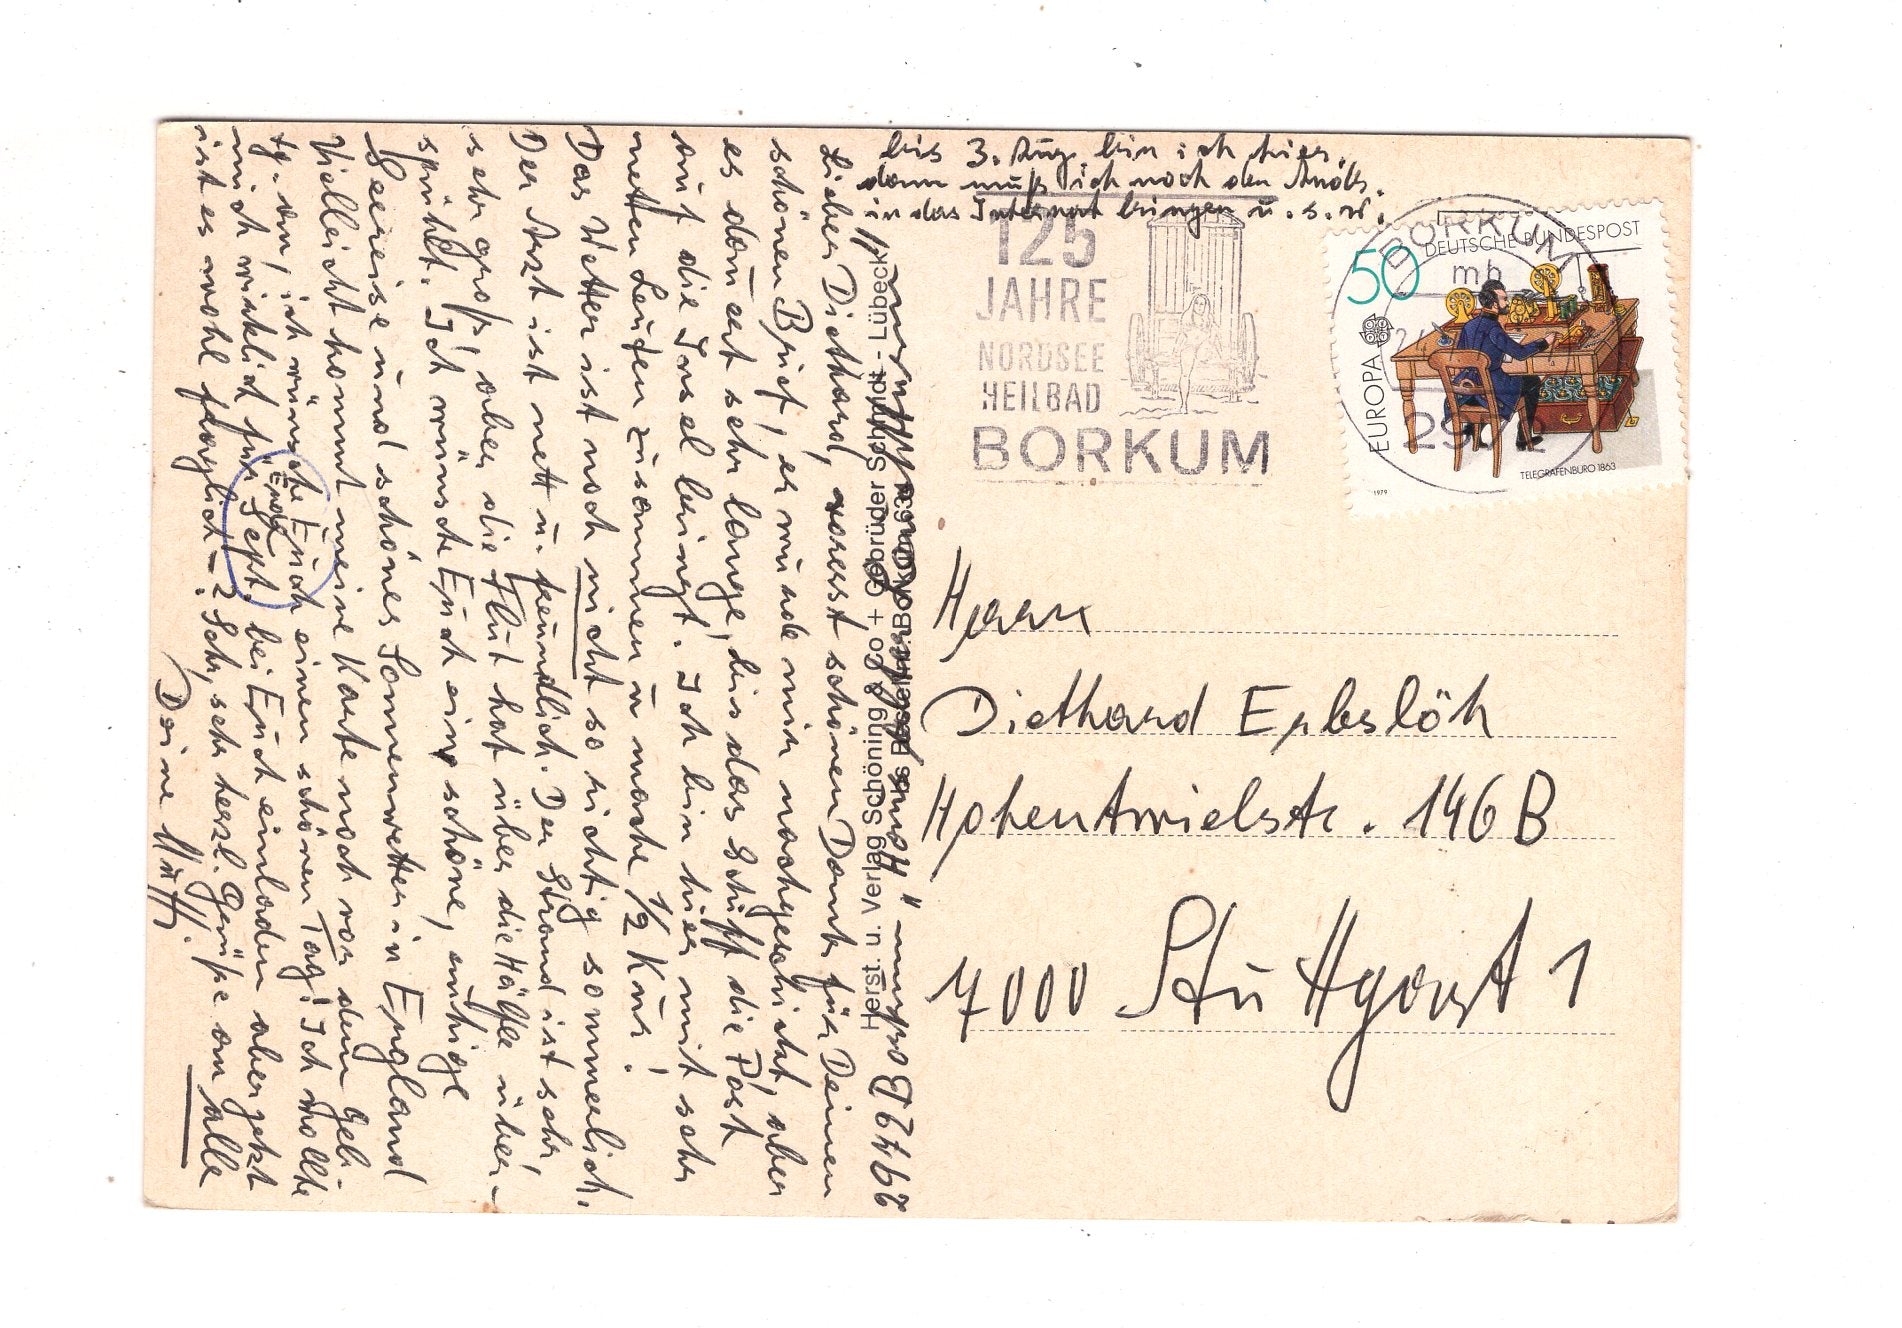 bis 3. Aug. bin ich hier,
dann muß ich noch den
in das Internat bringen u. s. w.
125
JAHRE
NORDSEE
HEILBAD
BORKUM
BORKUM
mb
50
DEUTSCHE BUNDESPOST
EUROPA
TELEGRAFENBÜRO 1863
1979
Herrn
Diethard Erbslöh
Hohentwielstr. 146 B
7000 Stuttgart 1
Herst. u. Verlag Schöning & Co + Gebrüder Schmidt - Lübeck
2972 Borkum
Lieber Diethard, vorerst schönen Dank für Deinen
schönen Brief, er wurde mir nachgeschickt, aber
es dauert sehr lange, bis das Schiff die Post
auf die Insel bringt. Ich bin hier mit sehr
netten Leuten zusammen u mache 1/2 Kur.
Das Wetter ist noch nicht so richtig sommerlich.
Der Arzt ist nett u. freundlich. Der Strand ist sehr,
sehr groß, aber die Flut hat über die Hälfte über-
spühlt. Ich wünsche Euch eine schöne, ruhige
Seereise und schönes Sonnenwetter in England
Vielleicht kommt meine Karte noch vor dem Geb.
tg. an, ich wünsche Euch einen schönen Tag! Ich wollte
mich wirklich für Ende Sept. bei Euch einladen aber jetzt
ist es wohl fraglich -? Sehr, sehr herzl. Grüße an alle
Deine